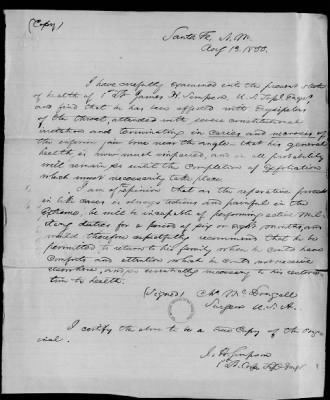 (Copy)
Santa Fe, N.M.
Aug 13. 1850.
I have carefully examined into the present state
of health of 1st Lt. James H. Simpson, U.S. Topl. Engrs.
and find that he has been affected with Erysipelas
of the throat, attended with severe constitutional
irritation and terminating in caries and necrosis of
the inferior jaw bone near the angle - that his general
health is very much impaired, and in all probability
will remain so until the completion of exfoliation
which must necessarily take place.
I am of opinion that as the reparative process
in like cases is always tedious and painful in the
extreme, he will be incapable of performing active mili-
tary duties for a period of six or eight months, and
would therefore respectfully recommend that he be
permitted to return to his family where he can have
comforts and attention which he can not receive
elsewhere, and so essentially necessary to his restora-
tion to health.
(Signed) Chs McDougall
Surgeon U.S.A.
I certify the above to be a true copy of the orig-
inal.
J. H. Simpson
1st Lt. Corps Topl Engs.